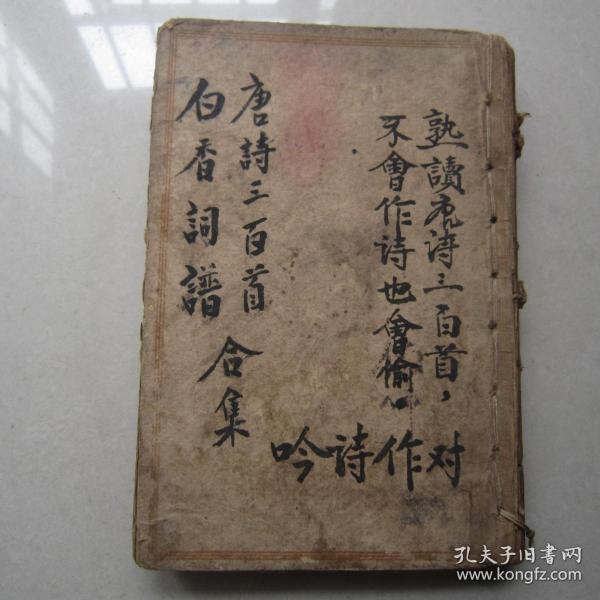 熟讀唐诗三百首，
不會作诗也會偷
对作诗吟
唐詩三百首
白香詞譜
合集
孔夫子旧书网
www.kongfz.com